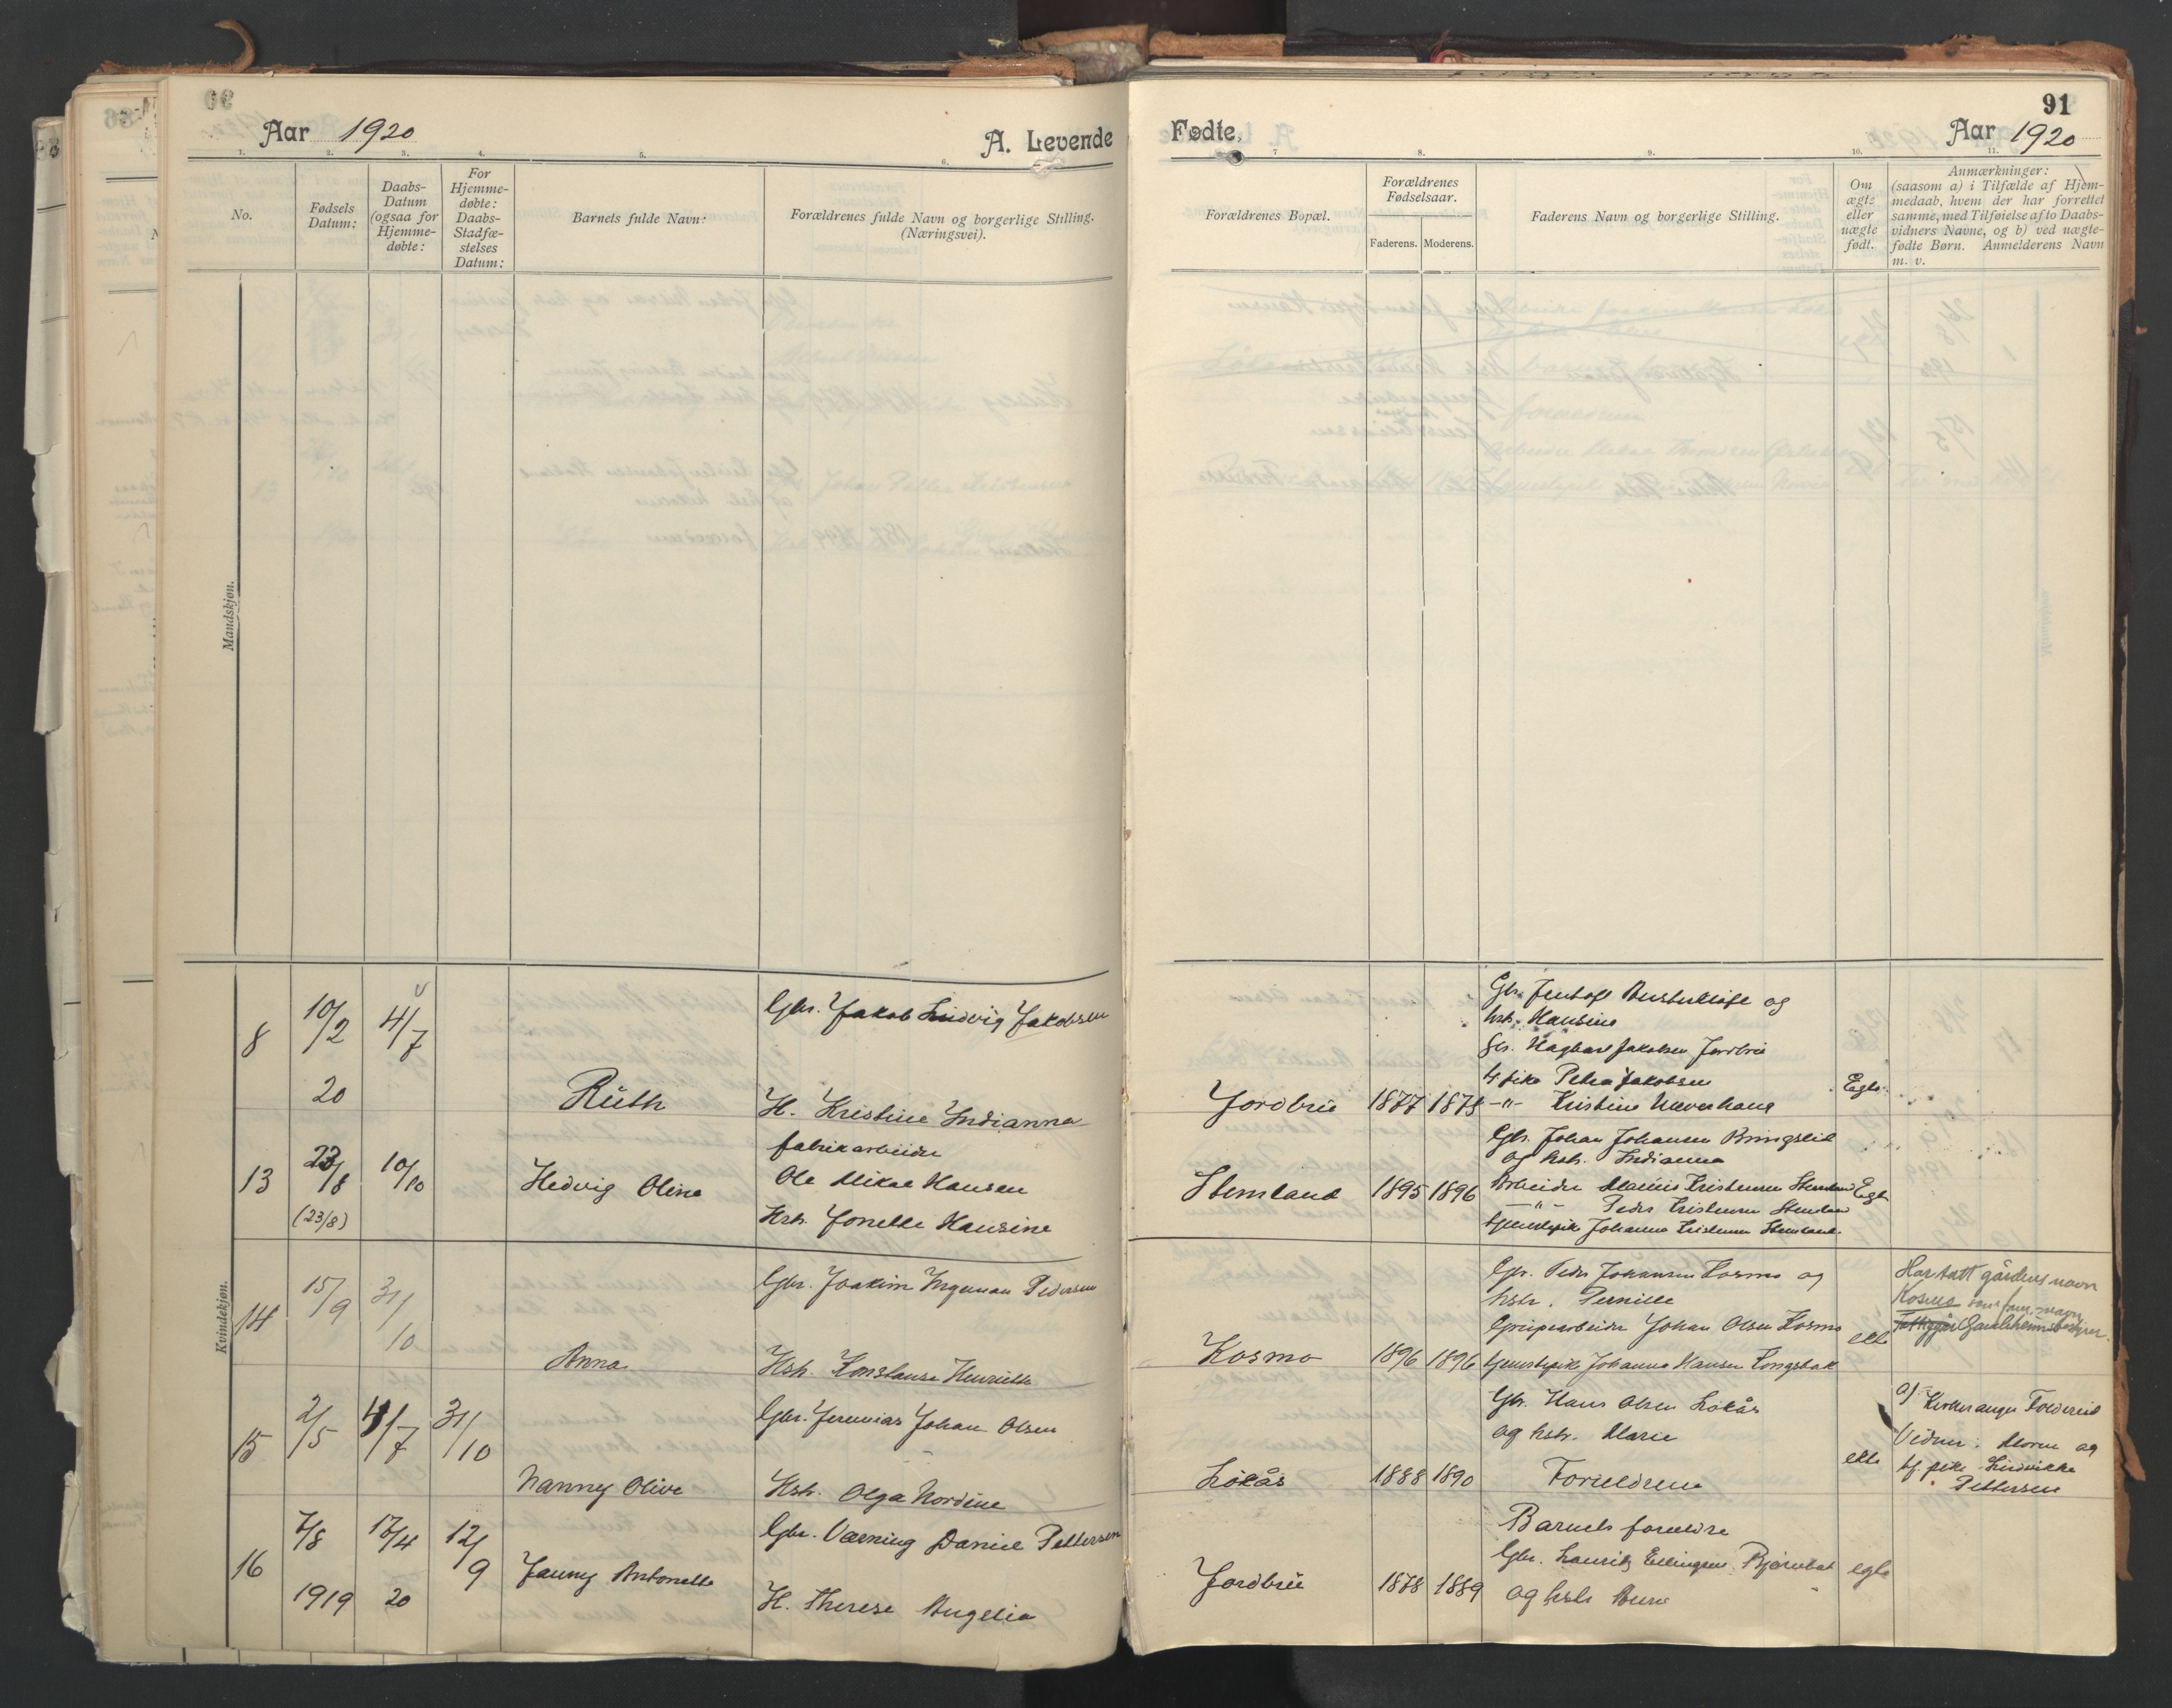 Aar 1920
A. Levende
1. 2. 3. 4. 5. 6.
No.
Fødsels Datum:
Daabs-Datum (ogsaa for Hjemme-døbte:
For Hjemme-døbte: Daabs-Stadfæ-stelses Datum:
Barnets fulde Navn:
Forældrenes fulde Navn og borgerlige Stilling. (Næringsvei).
Mandskjøn.
Kvindekjøn.
8
10/2
20
4/7
Ruth
Gbr. Jakob Ludvig Jakobsen
H. Kristine Indianna
13
23/8
(23/8)
10/10
Hedvig Oline
fabrikarbeider
Ole Mikal Hansen
Hstr. Jonette Hansine
14
15/9
31/10
Anna
Gbr. Joakim Ingeman Pedersen
Hstr. Konstanse Henriette
15
2/5
4/7
31/10
Nanny Olive
Gbr. Jeremias Johan Olsen
Hstr. Olga Nordine
16
7/8
1919
17/4
20
12/9
Fanny Antonette
Gbr. Værning Daniel Pettersen
H. Therese Angelia
91
Fødte,
Aar 1920
7 8. 9. 10. 11.
Forældrenes Bopæl.
Forældrenes Fødselsaar.
Faderens. Moderens.
Faderens Navn og borgerlige Stilling.
Om ægte eller uægte født.
Anmærkninger:
(saasom a) i Tilfælde af Hjem-
medaab, hvem der har forrettet
samme, med Tilføielse af to Daabs-
vidners Navne, og b) ved uægte-
fødte Børn. Anmelderens Navn
m. v.
Jordbru
1877 1878
Gbr. Jentoft
og
hstr. Hansine
Gbr. Hagbart Jakobsen Jordbru
tj. pike Petra Jakobsen
-"- Kristine Neverhaug
Egte
Stemland
1895 1896
Gbr. Johan Johansen Bringslid
og hstr. Indianna
Arbeider Marius Kristensen Stemland
-"- Peder Kristensen Stemland
tjenestepike Johanna Kristensen Stemland.
Egte
Kosmo
1896 1896
Gbr. Peder Johansen Kosmo og
hstr. Pernille
Grubearbeider Johan Olsen Kosmo
tjenestepike Johanna Hansen Kongsbak
ekte
Har tatt gårdens navn
Kosmo som fam. navn
Gamlehjemsbestyrer.
Løkås
1888 1890
Gbr. Hans Olsen Løkås
og hstr. Marie
Forældrene
ekte
a) Kirkesanger Foldereid
Vidner: Moren og
tj. pike Lindvikke
Pettersen
Jordbru
1878 1889
Barnets forældre
Gbr. Lauritz Ellingsen Bjørnbak
og hstr.
egte